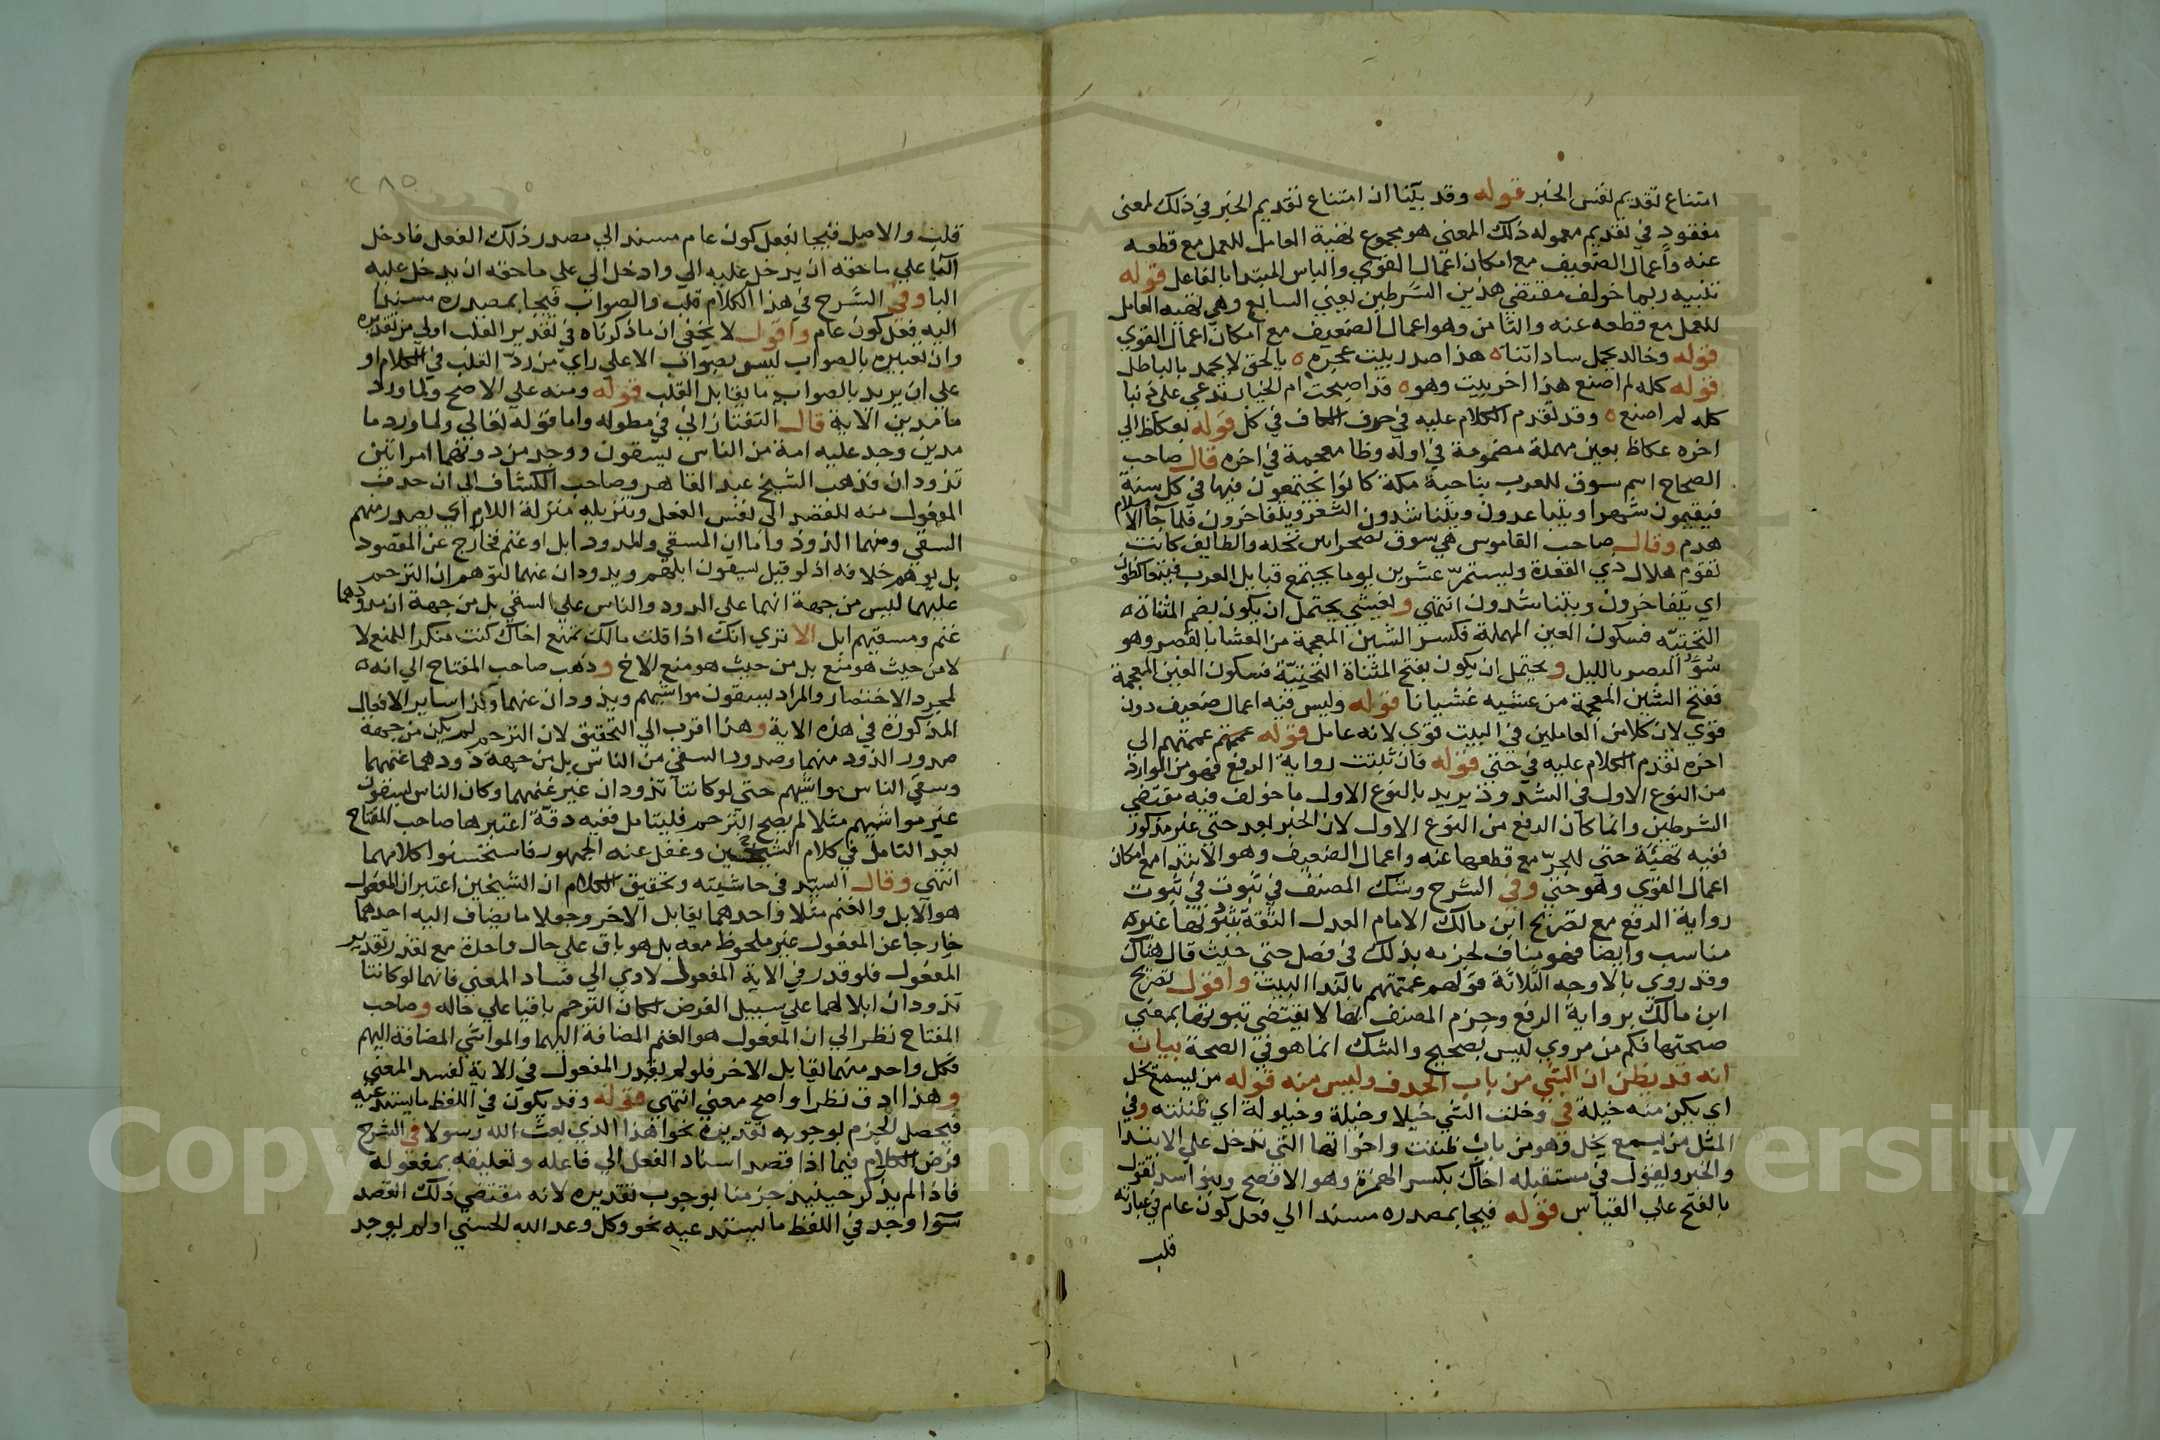 امتناع تقديم نفس الخبر قوله وقد بينا ان امتناع تقديم الخبر في ذلك لمعنى
مفقود في تقديم معموله ذلك المعني هو مجموع تهية العامل للعمل مع قطعه
عنه واعمال الضعيف مع امكان اعمال القوي والباس المبتدا بالفاعل قوله
تنبيه ربما خولف مقتضي هذين الشرطين يعني السابع وهي تهيه العامل
للعمل مع قطعه عنه والثامن وهو اعمال الضعيف مع امكان اعمال القوي
قوله وخالد يحمد ساداتنا ه هذا صدر بيت عجزه ه بالحق لا يحمد بالباطل
قوله كله لم اصنع هذا اخر بيت وهو ه قد اصبحت ام الخيار تدعي علي ذنبا
كله لم اصنع ه وقد تقدم الكلام عليه في حرف الكاف في كل قوله بعكاظ الي
اخره عكاظ بعين مهملة مضمومة في اوله وظا معجمة في اخره قال صاحب
الصحاح اسم سوق للعرب بناحية مكة كانوا يجتمعون فيها في كل سنة
فيقيمون شهرا ويتبا عدون ويتناشدون الشعر ويتفاخرون فلما جا الاسلام
هدم وقال صاحب القاموس هي سوق بصحرا بين نخله والطايف كانت
تقوم هلال ذي القعدة وتستمر عشرين يوما يجتمع قبايل العرب فيتعاكظون
اي يتفاخرون ويتناشدون انتهي ويغشي يحتمل ان يكون بضم المثناة ه
التحتيه فسكون العين المهملة فكسر الشين المعجمة من العشا بالقصر وهو
سوء البصر بالليل ويحتمل ان يكون بفتح المثناة التحتيّة فسكون الغين المعجمة
ففتح الشين المعجمة من غشيه غشيانا قوله وليس فيه اعمال ضعيف دون
قوي لان كلا من العاملين في البيت قوي لانه عامل قوله عممتهم عممتهم الي
اخره تقدم الكلام عليه في حتي قوله فان ثبتت رواية الرفع فهو من الوارد
من النوع الاول في الشذوذ يريد بالنوع الاول ما خولف فيه مقتضي
الشرطين وانما كان الرفع من النوع الاول لان الخبر بعد حتي غير مذكور
ففيه تهيئة حتي للجر مع قطعها عنه واعمال الضعيف وهو الابتدا مع امكان
اعمال القوي وهو حتي وفي الشرح وشك المصنف في ثبوت في ثبوت
رواية الرفع مع تصريح ابن مالك الامام العدل الثقة بثبوتها غير ه
مناسب وايضا فهو مناف لجزمه بذلك في فصل حتي حيث قال هناك
وقد روي بالاوجه الثلاثة قولهم عممتهم بالندا البيت واقول تصريح
ابن مالك برواية الرفع وجزم المصنف بها لا يقتضي ثبوتها بمعني
صحتها فكم من مروي ليس بصحيح والشك انما هو في الصحة بيان
انه قد يظن ان الشي من باب الحذف وليس منه قوله من يسمع يخل
اي يكن منه خيلة في وخلت الشي خيلا وخيلة وخيلولة اي ظننته وفي
المثل من يسمع يخل وهو من باب ظننت واخواتها التي تدخل علي الابتدا
والخبر وتقول في مستقبله اخاك بكسر الهمزة وهو الافصح وبنو اسد تقول
بالفتح علي القياس قوله فيجا بمصدره مسندا الي فعل كون عام في عبارته
قلب
٢٨٥
قلب والاصل فيجا بفعل كون عام مسند الي مصدر ذلك الفعل فادخل
البا علي ما حقه ان يدخل عليه الي وادخل الي علي ما حقه ان يدخل عليه
البا وفي الشرح في هذا الكلام قلب والصواب فيجا بمصدره مسندا
اليه فعل كون عام واقول لا يخفي ان ما ذكرناه في تقدير القلب اولي من تقديره
وان تعبيره بالصواب ليس بصواب الا علي راي من رد القلب في الكلام او
علي ان يريد بالصواب ما يقابل القلب قوله ومنه علي الاصح ولما ورد
ما مدين الاية قال التفتازاني في مطوله واما قوله تعالي ولما ورد ما
مدين وجد عليه امة من الناس يسقون ووجد من دونهما امراتين
تذودان فذهب الشيخ عبد القاهر وصاحب الكشاف الي ان حذف
المفعول منه للقصد الي نفس الفعل وتنزيله منزلة اللازم اي يصدر منهم
السقي ومنهما الذود واما ان المسقي والمذود ابل او غنم فخارج عن المقصود
بل يوهم خلافه اذ لو قيل يسقون ابلهم ويذودان غنمهما لتوهم ان الترحم
عليهما ليس من جهة انهما علي الذود والناس علي السقي بل من جهة ان مذودهما
غنم ومسقيهم ابل الا تري انك اذا قلت مالك تمنع اخاك كنت منكرا للمنع لا
لا من حيث هو منع بل من حيث هو منع الاخ وذهب صاحب المفتاح الي انه ه
لمجرد الاختصار والمراد يسقون مواشيهم ويذودان غنهما وكذا ساير الافعال
المذكورة في هذه الاية وهذا اقرب الي التحقيق لان الترحم لم يكن من جهة
صدور الذود منهما وصدور السقي من الناس بل من جهة ذودهما غنمهما
وسقي الناس مواشيهم حتي لو كانتا تذودان غير غنمهما وكان الناس يسقون
غير مواشيهم مثلا لم يصح الترحم فليتامل ففيه دقة اعتبرها صاحب المفتاح
بعد التامل في كلام الشيخين وغفل عنه الجمهور فاستحسنوا كلامهما
انتهي وقال السيد في حاشيته وتحقيق الكلام ان الشيخين اعتبرا ان المفعول
هو الابل والغنم مثلا واحدهما يقابل الاخر وجعلا ما يضاف اليه احدهما
خارجا عن المفعول غير ملحوظ معه بل هو باق علي حال واحدة مع تقدر تقدير
المفعول فلو قدر في الاية المفعول لادي الي فساد المعني فانهما لو كانتا
تذودان ابلا لهما علي سبيل الفرض لكان الترحم باقيا علي حاله وصاحب
المفتاح نظر الي ان المفعول هو الغنم المضافة اليهما والمواشي المضافة اليهم
فكل واحد منهما تقابل الاخر فلو لم يقدر المفعول في الاية لفسد المعني
وهذا ادق نظرا واصح معني انتهي قوله وقد يكون في اللفظ ما يستدعيه
فيحصل الجزم بوجوب تقديره نحو اهذا الذي بعث الله رسولا في الشرح
فرض الكلام فيما اذا قصد اسناد الفعل الي فاعله وتعليقه بمفعوله
فاذا لم يذكر حينيذ جزمنا بوجوب تقديره لانه مقتضي ذلك القصد
سوا وجد في اللفظ ما يستدعيه نحو وكل وعد الله الحسني اولم يوجد